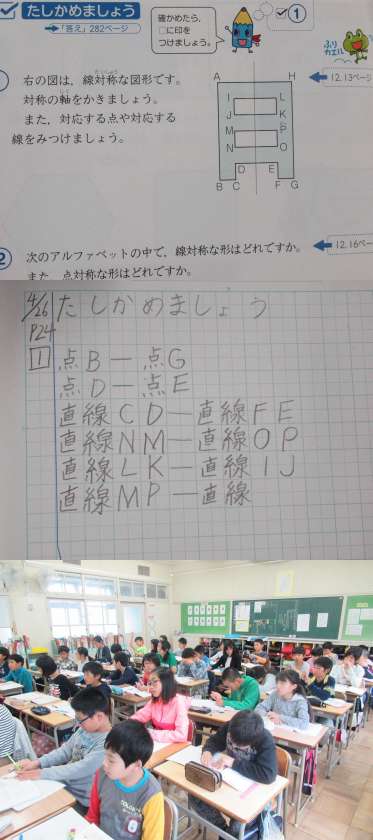 たしかめましょう
1
「答え」282ページ
確かめたら、
□に印を
つけましょう。
ふり
カエル
右の図は、線対称な図形です。
対称の軸をかきましょう。
また、対応する点や対応する
線をみつけましょう。
12,13ページ
A H
I L
J K
M P
N O
D E
B C F G
2
次のアルファベットの中で、線対称な形はどれですか。
また、点対称な形はどれですか。
12,16ペー
4/26 たしかめましょう
P24
1 点B－点G
点D－点E
直線CD－直線FE
直線NM－直線OP
直線LK－直線IJ
直線MP－直線